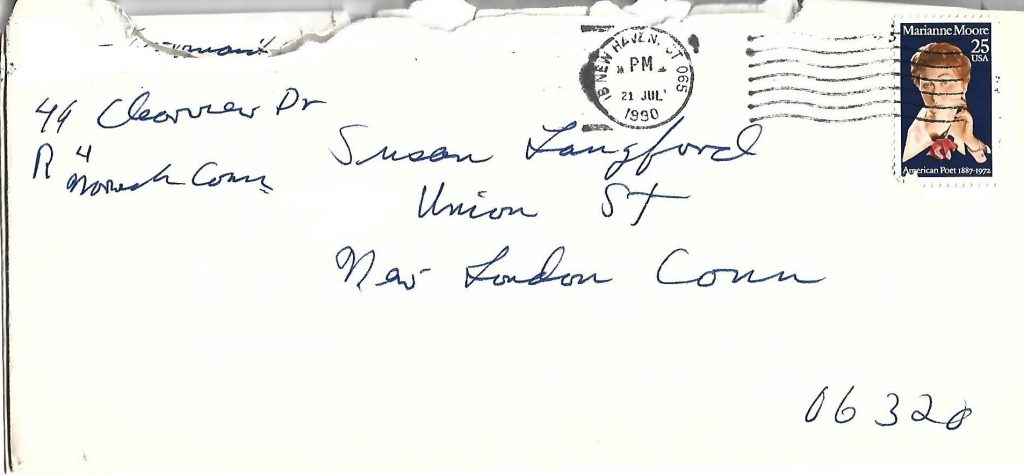 44 Clearview Dr
R 4
Norwich Conn
IB NEW HAVEN, CT 065
PM
21 JUL
1990
Marianne Moore
25
USA
American Poet 1887-1972
Susan Langford
Union St
New London Conn
06320